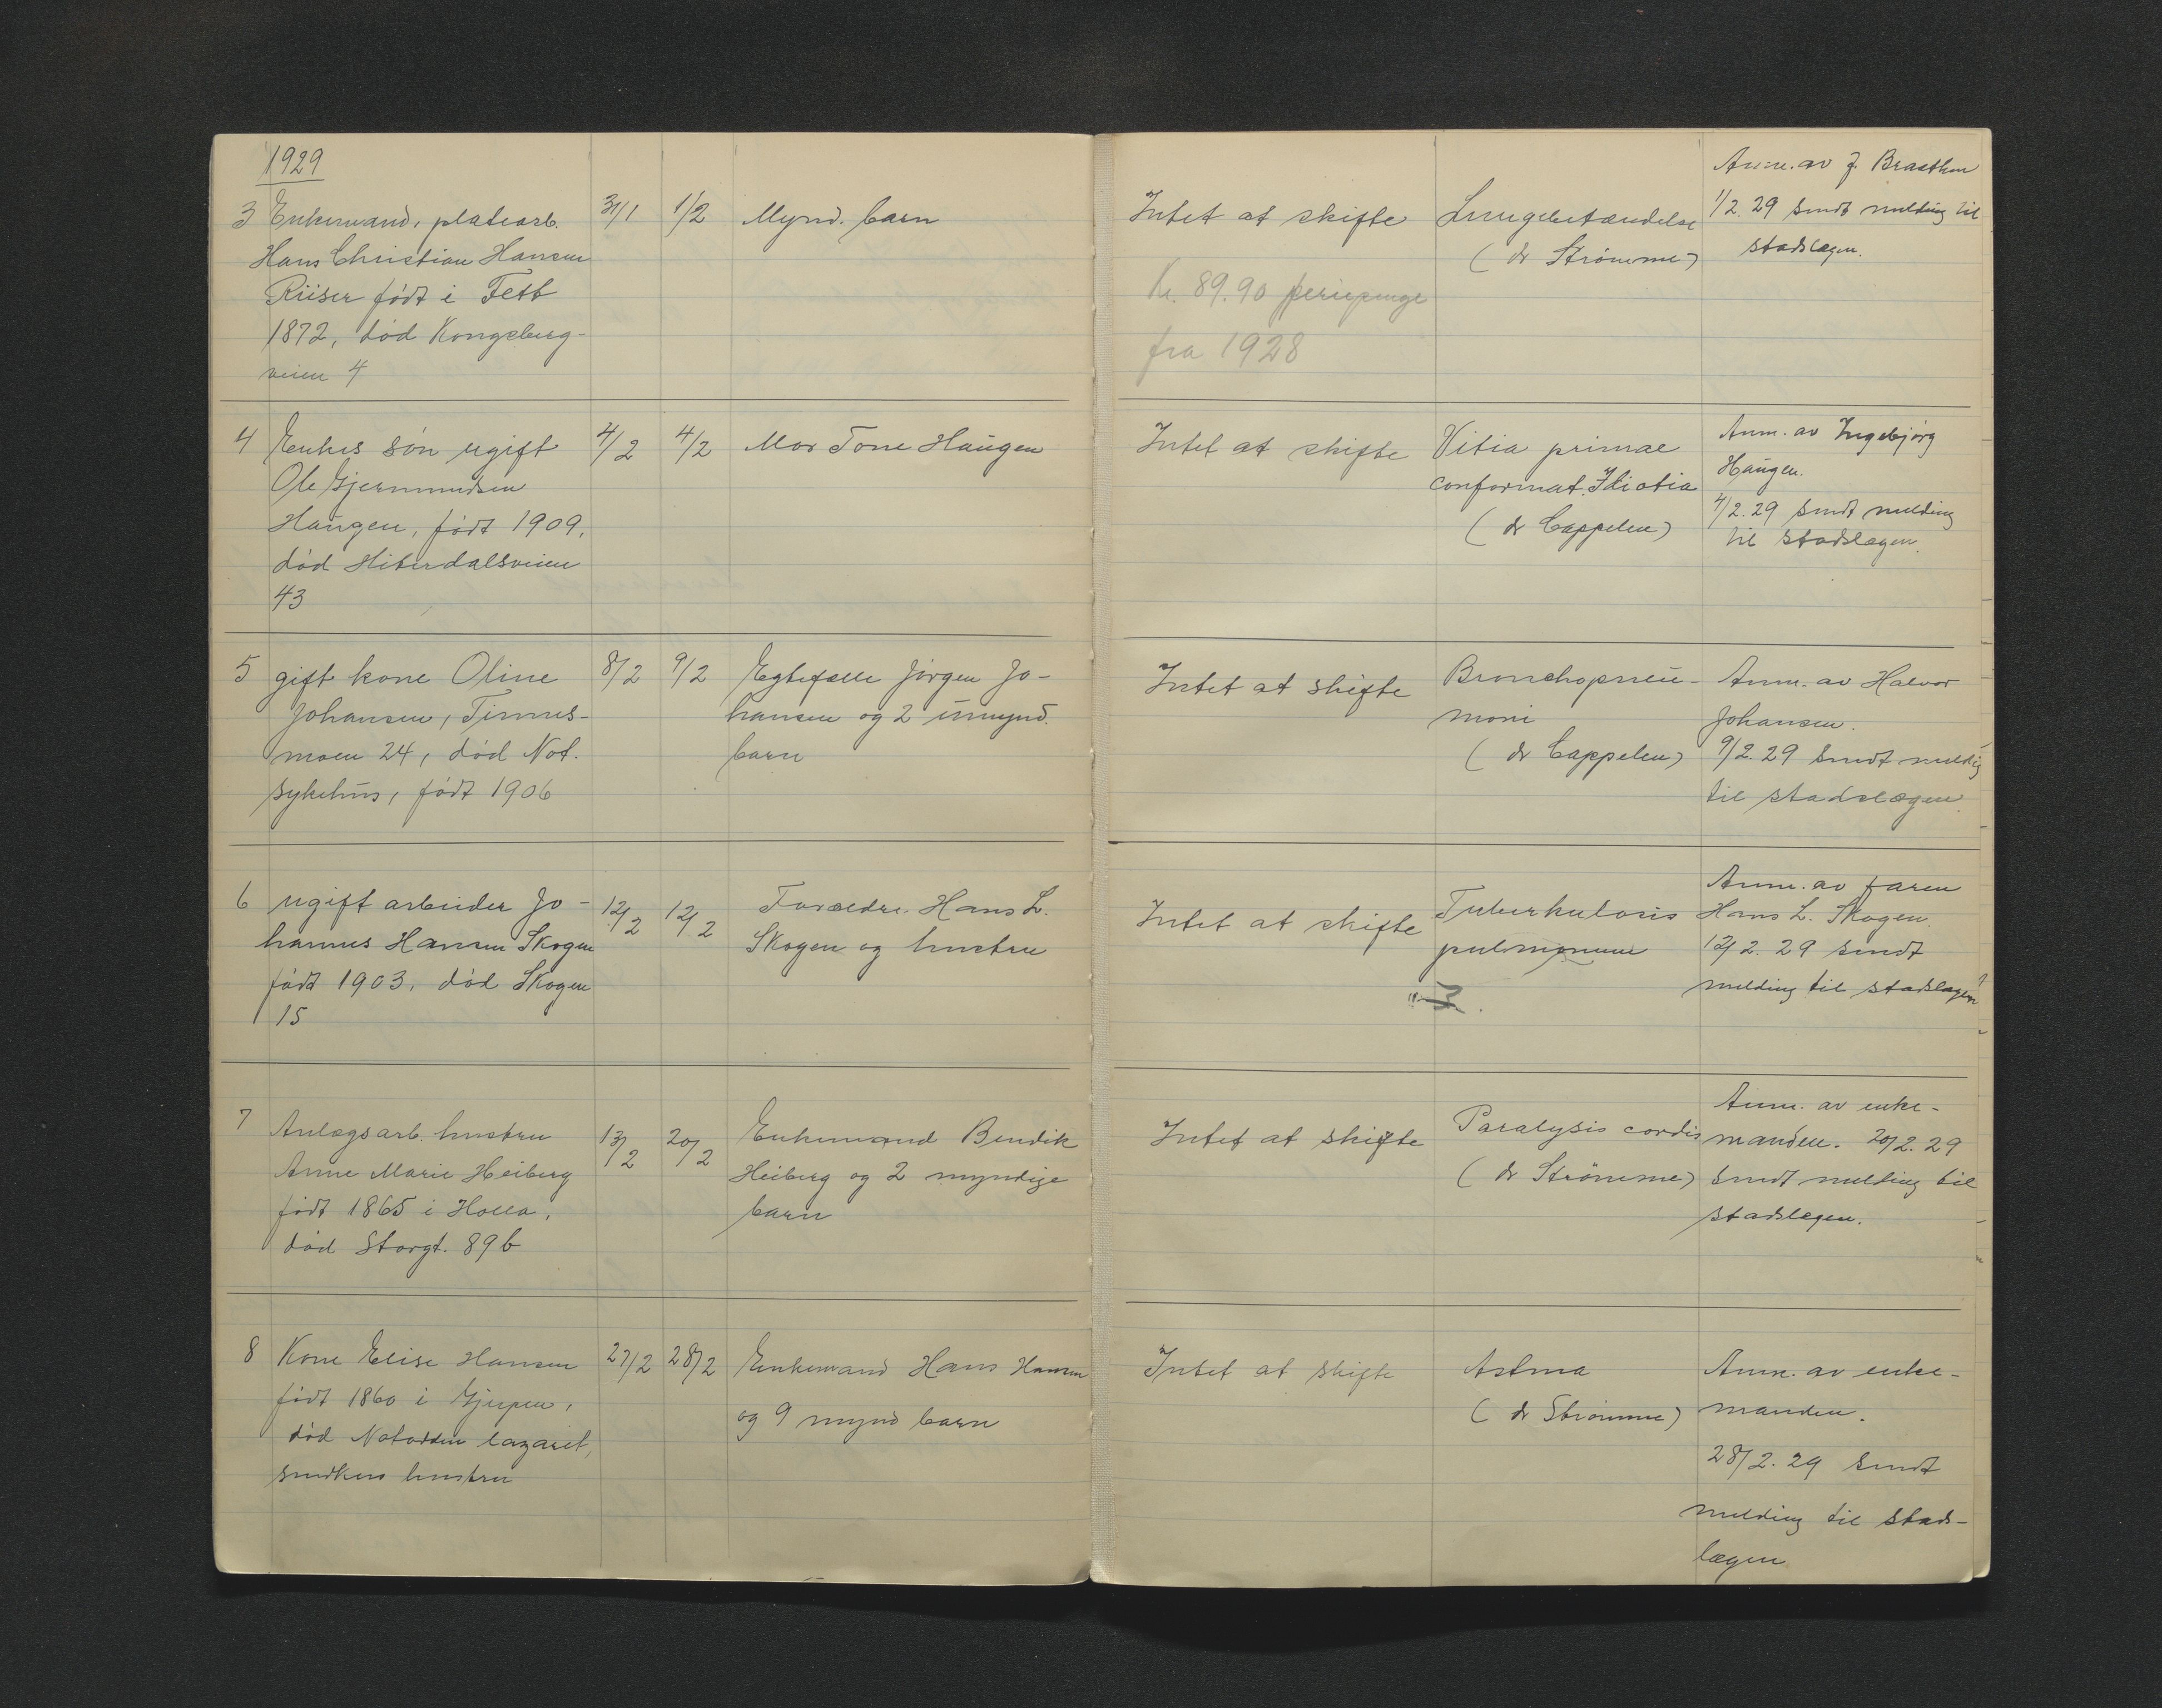 1929
3 Enkemand, platearb. 31/1 1/2 Mynd. barn
Hans Christian Hansen
Riiser født i Fett
1872, død Kongsberg-
veien 4
4 Enkes søn ugift 4/2 4/2 Mor Tone Haugen
Ole Gjermundsen
Haugen, født 1909,
død Hiterdalsveien
43
5 gift kone Oline 8/2 9/2 Egtefælle Jørgen Jo-
Johansen, Tinnes- hansen og 2 umynd.
moen 24, død Not. barn
sykehus, født 1906
6 ugift arbeider Jo- 12/2 12/2 Forældre Hans L.
hannes Hansen Skogen Skogen og hustru
født 1903, død Skogen
15
7 Anlægsarb. hustru 13/2 20/2 Enkemand Bendik
Anne Marie Heiberg Heiberg og 2 myndige
født 1865 i Holla, barn
død Storgt. 89 b
8 Kone Elise Hansen 27/2 28/2 Enkemand Hans Hansen
født 1860 i Gjerpen, og 9 mynd barn
død Notodden lazaret,
snedkers hustru
Anm. av J. Braathen
Intet at skifte Lungebetændelse 1/2.29 sendt melding til
(dr Strømme) stadslægen.
Kr. 89.90 feriepenge
fra 1928
Intet at skifte Vitia primae Anm. av Ingebjørg
conformat. Idiotia Haugen.
(dr Cappelen) 4/2.29 sendt melding
til stadslægen.
Intet at skifte Bronchopneu- Anm. av Halvor
moni Johansen.
(dr Cappelen) 9/2.29 sendt melding
til stadslægen.
Anm. av faren
Intet at skifte Tuberkulosis Hans L. Skogen.
pulmonum 12/2.29 sendt
melding til stadslægen
Anm. av enke-
Intet at skifte Paralysis cordis manden. 20/2.29
(dr Strømme) sendt melding til
stadslegen.
Intet at skifte Astma Anm. av enke-
(dr Strømme) manden.
28/2.29 sendt
melding til stads-
lægen